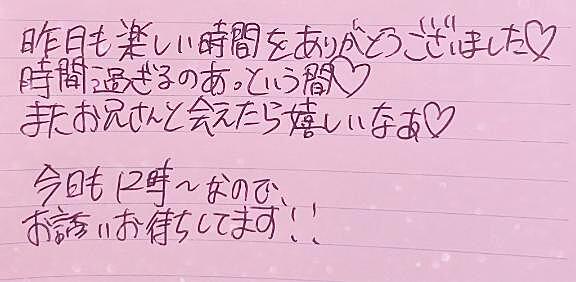 昨日も楽しい時間をありがとうございました♡
時間過ぎるのあっという間♡
またお兄さんと会えたら嬉しいなあ♡
今日も12時～なので、
お誘いお待ちしてます!!